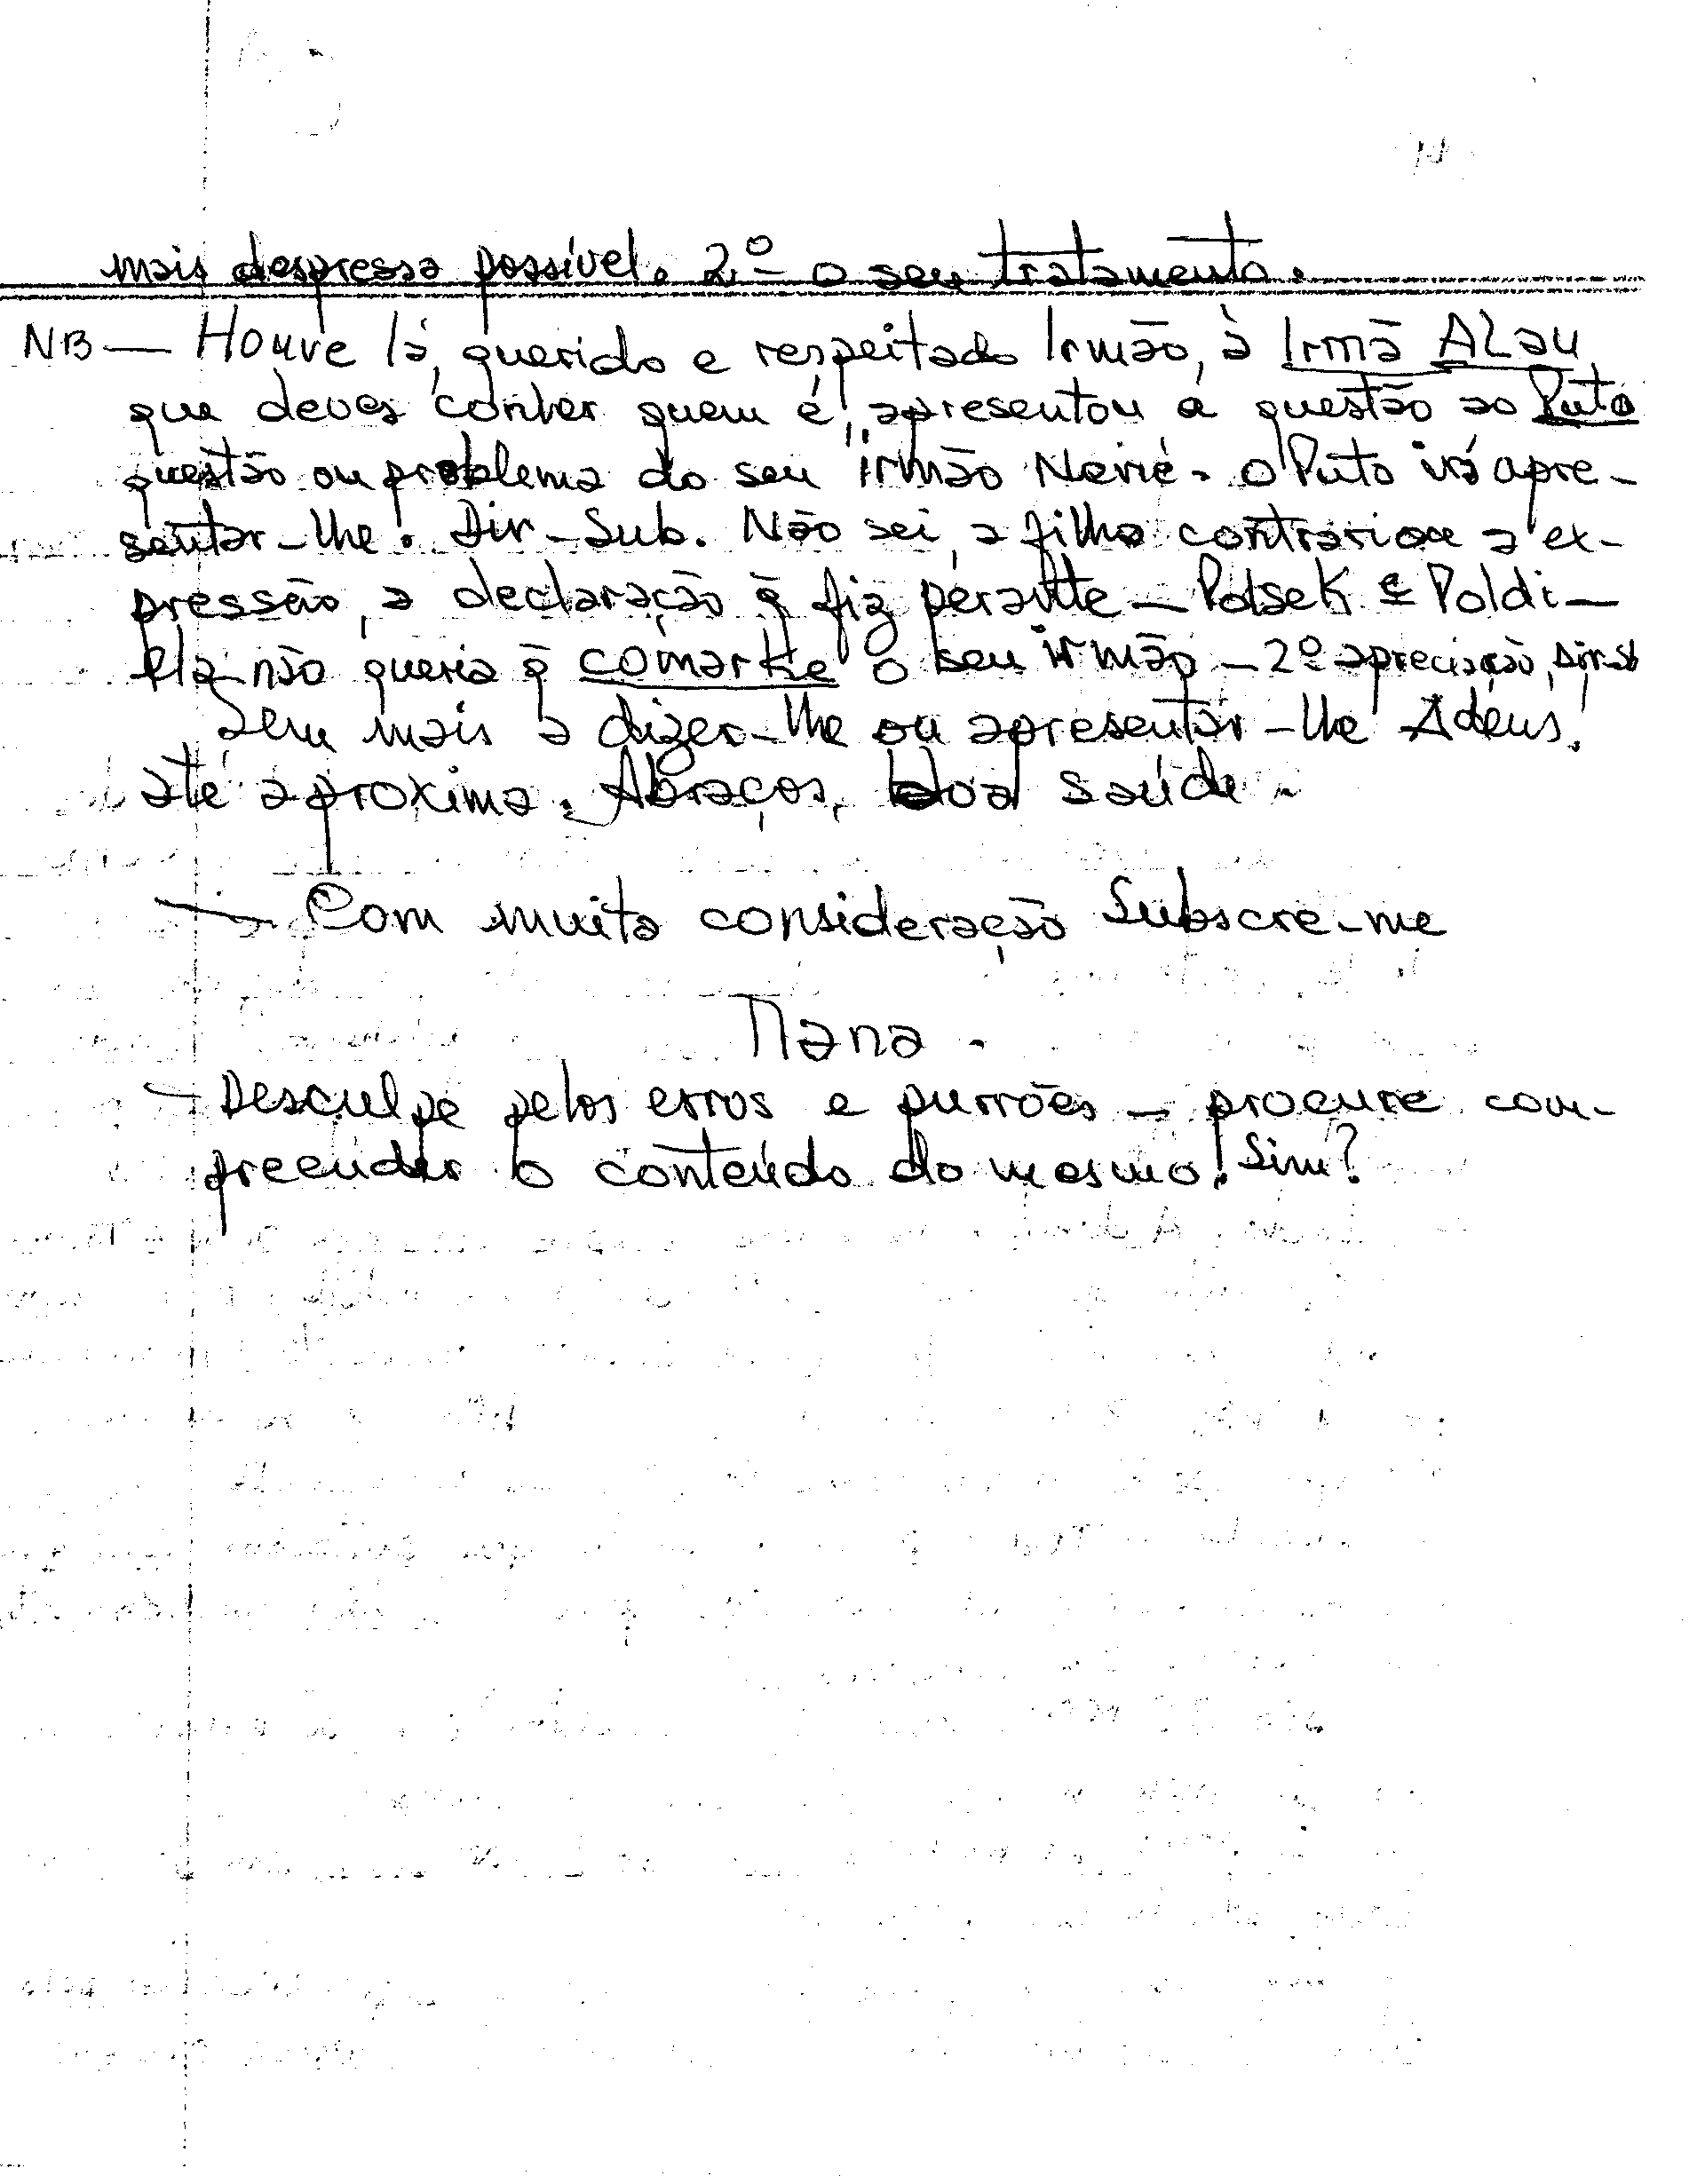 mais despressa possível. 2.º o seu tratamento.
NB — Houve lá, querido e respeitado Irmão, à Irmã ALau
que deves conher quem é, apresentou a questão ao Puto
questão ou problema do seu irmão Nerié. O Puto irá apre-
sentar-lhe. Dir-Sub. Não sei, a filha contrariou a ex-
pressão, a declaração q̃ fiz perante — Polsek e Poldi —
Ela não queria q̃ comarke o seu irmão — 2º apreciação, Dir-Sb
Sem mais a dizer-lhe ou apresentar-lhe Adeus,
até a proxima. Abraços, boa saúde.
— Com muita consideração Subscre-me
Nana.
— Desculpe pelos erros e purrões — procure com-
preender o conteúdo do mesmo! Sim?